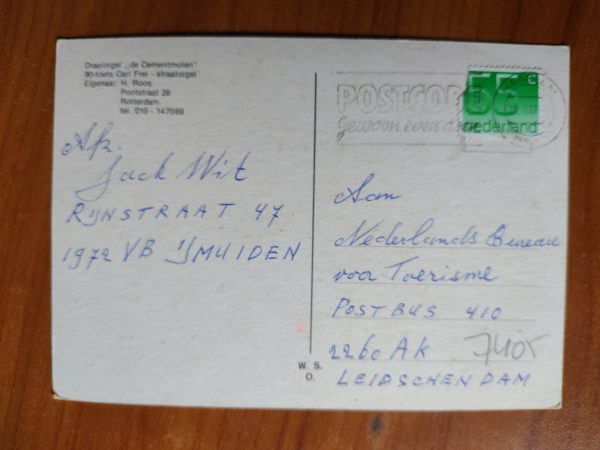 Draaiorgel „de Cementmolen"
90-toets Carl Frei - straatorgel
Eigenaar: H. Roos
Pootstraat 28
Rotterdam
tel. 010 - 147069
Afz.
Jack Wit
RIJNSTRAAT 47
1972 VB IJMUIDEN
POSTCODE
gewoon even
nederland
Aan
Nederlands Bureau
voor Toerisme
POSTBUS 410
2260 AK 7405
LEIDSCHENDAM
W. S.
O.